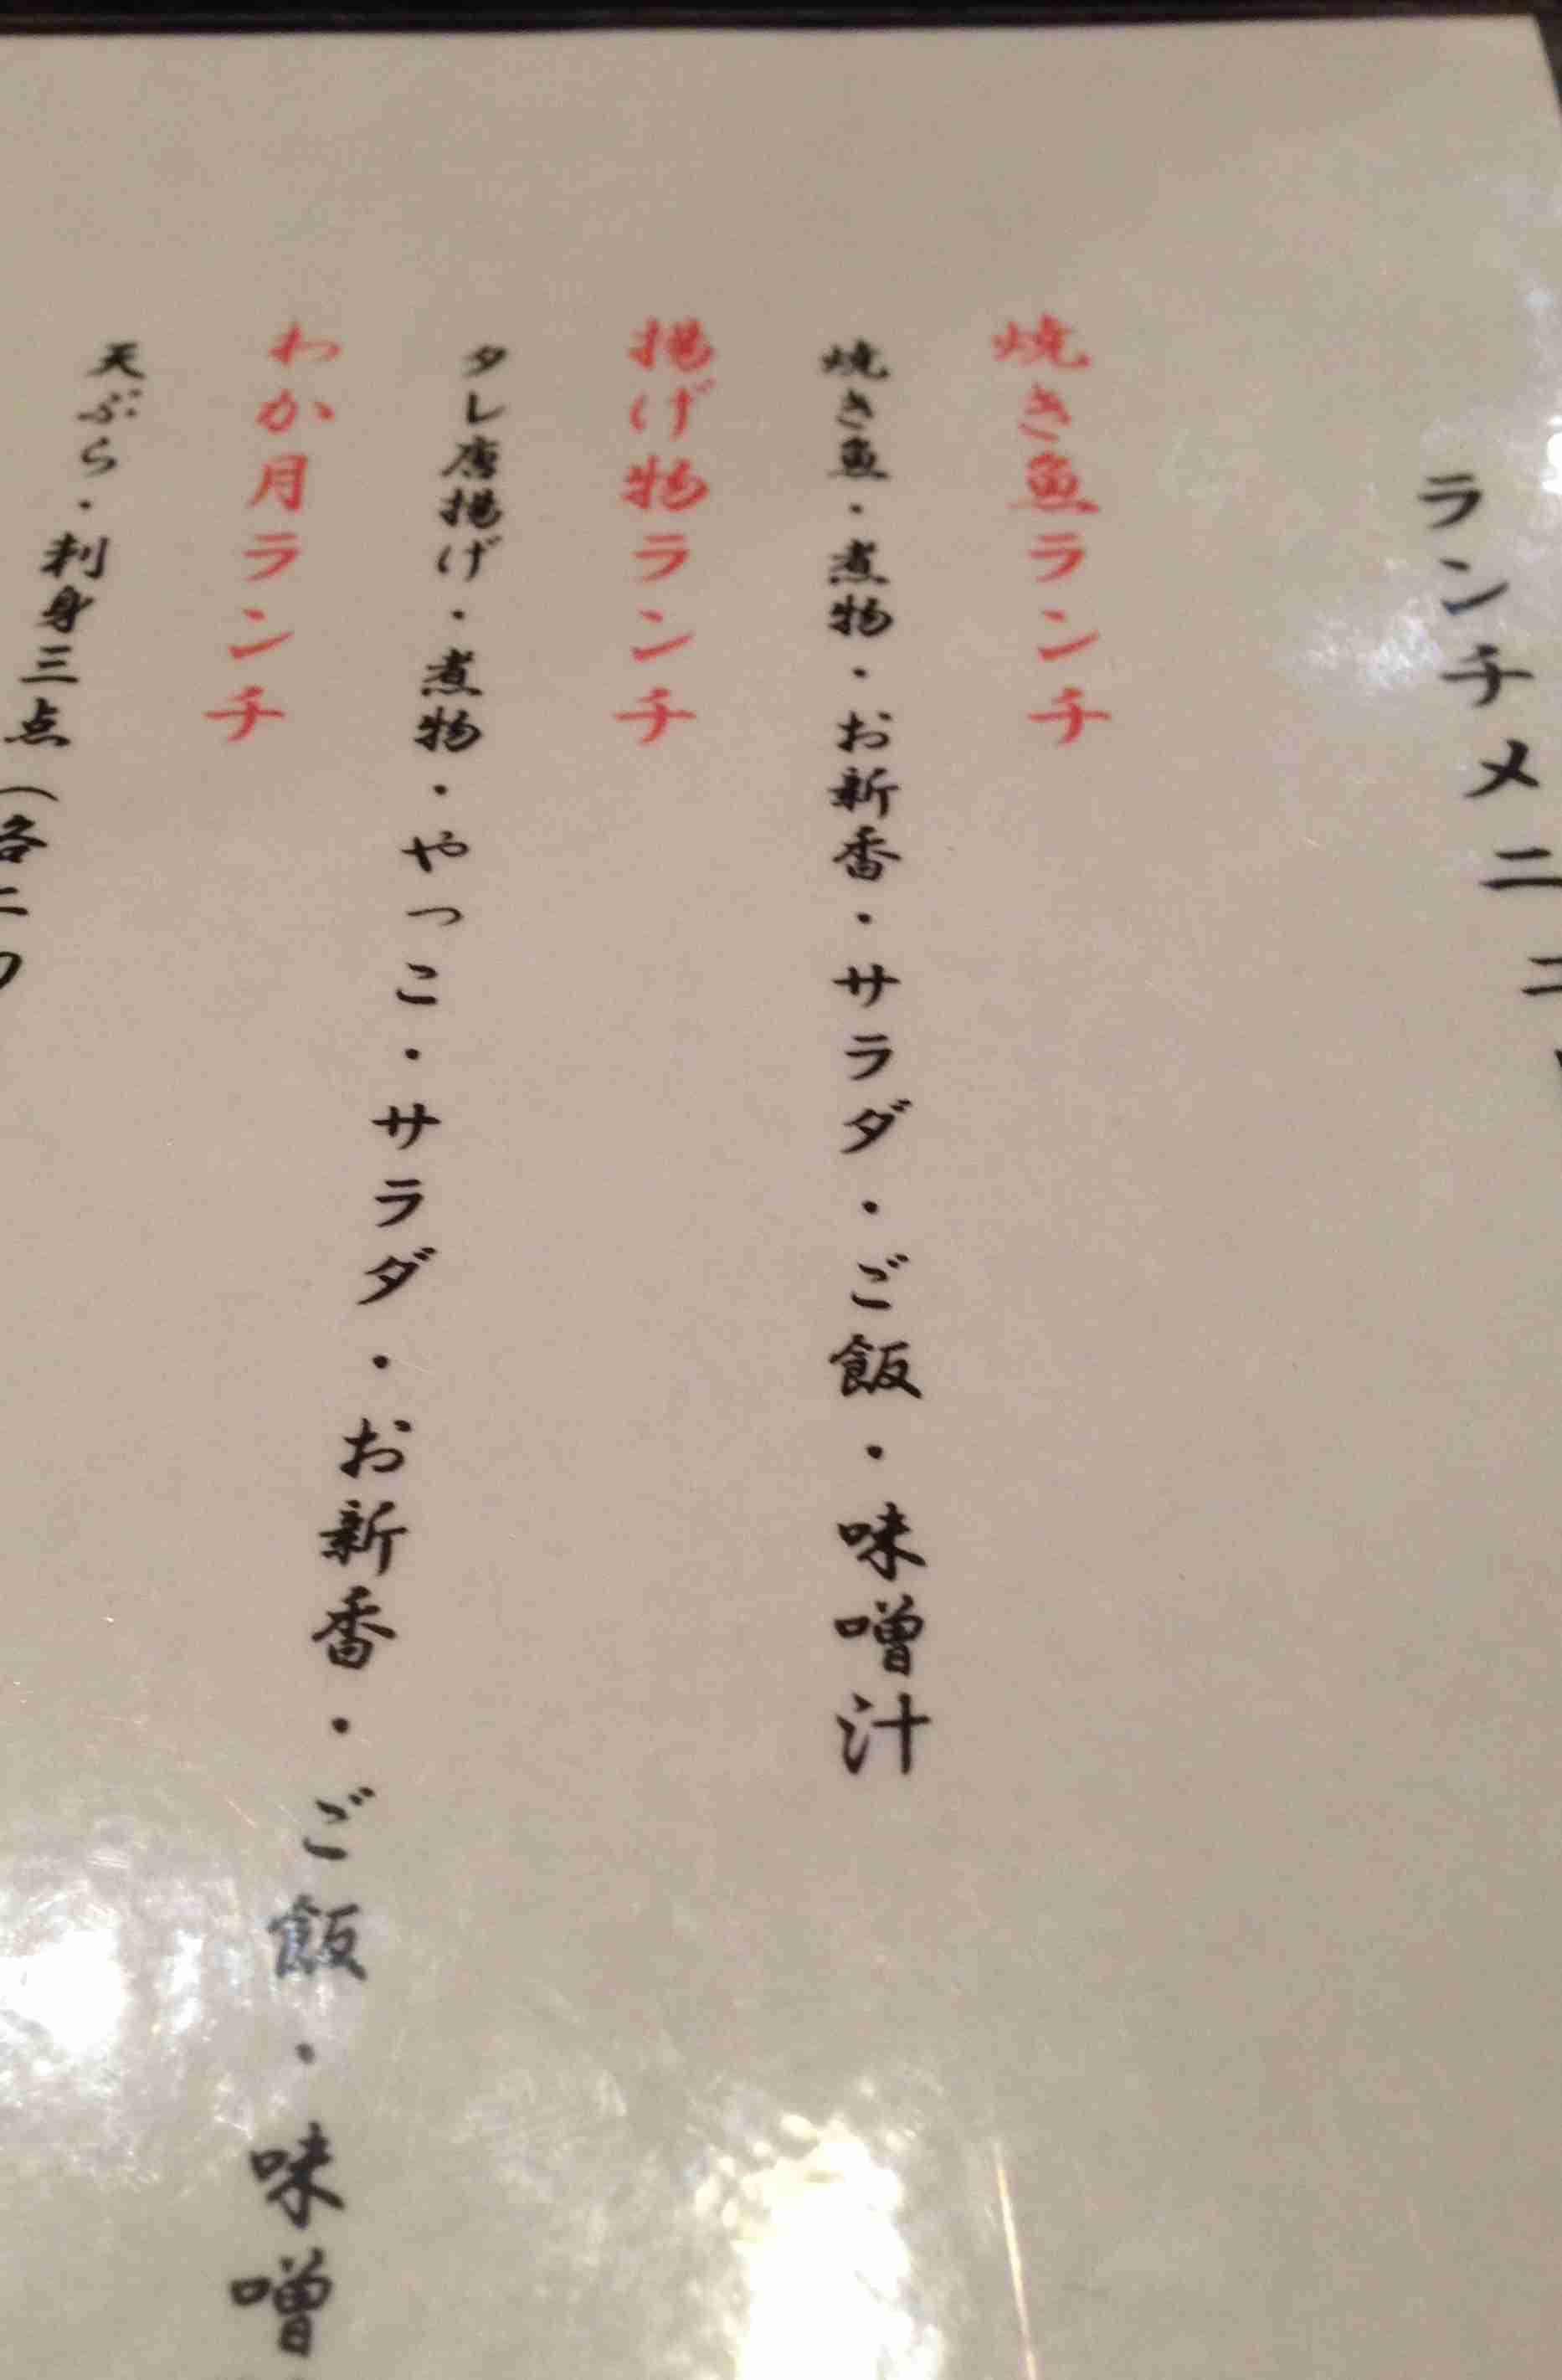 ランチメニュ
焼き魚ランチ
焼き魚・煮物・お新香・サラダ・ご飯・味噌汁
揚げ物ランチ
タレ唐揚げ・煮物・やっこ・サラダ・お新香・ご飯・味噌
わか月ランチ
天ぷら・刺身三点（各二